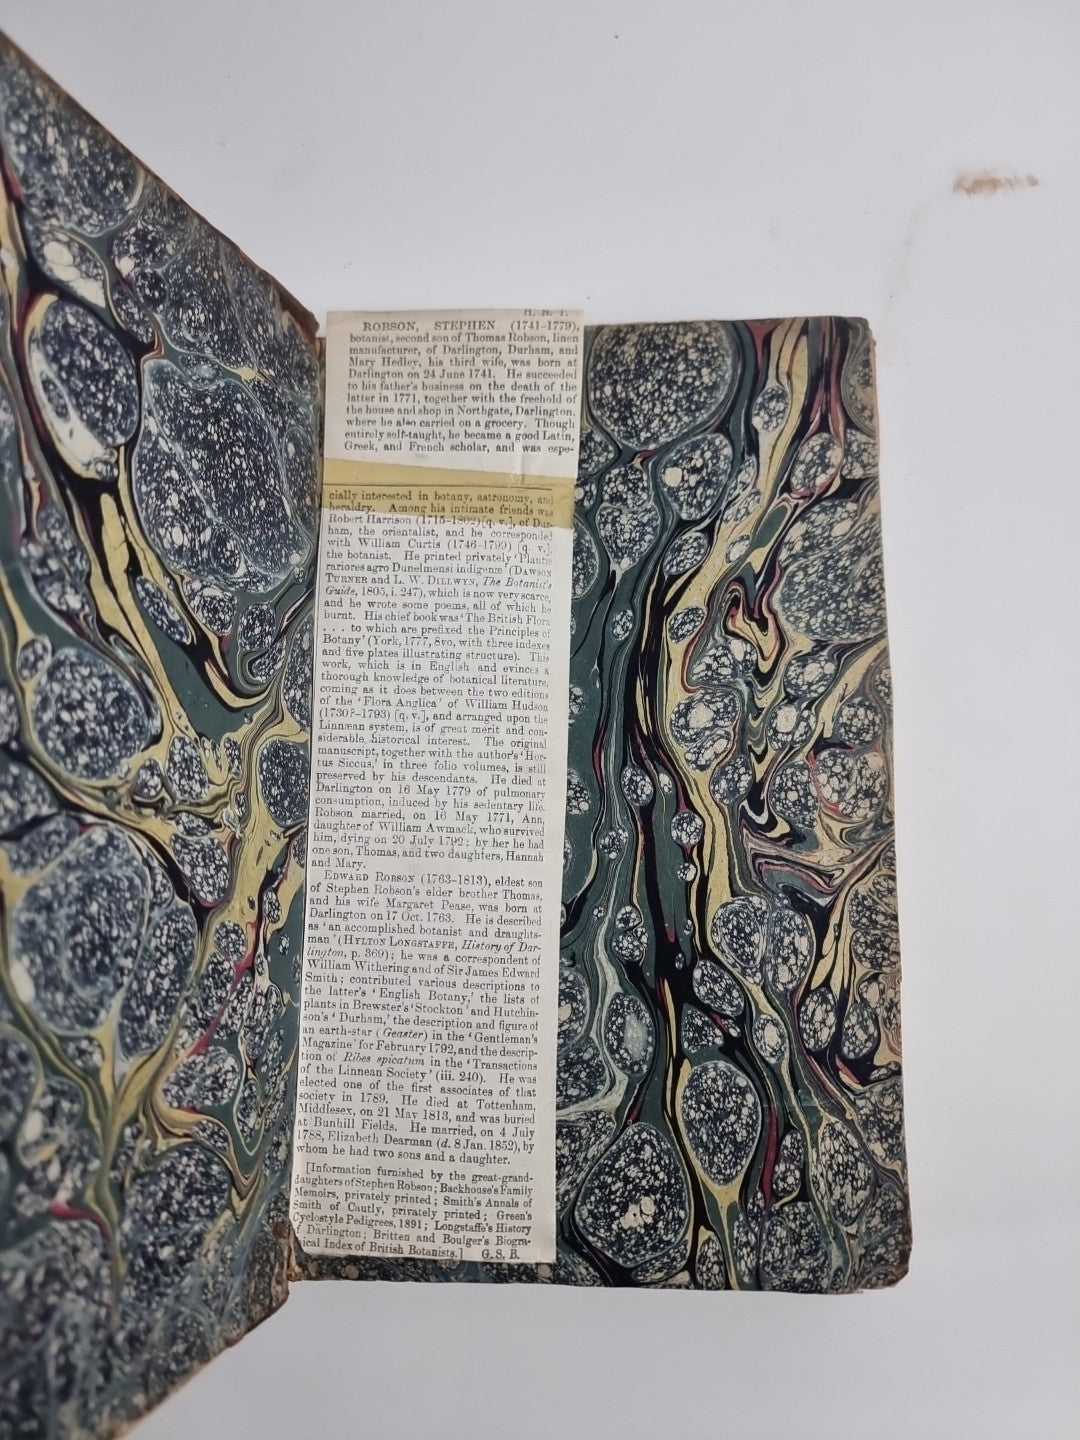 H. R. T.
ROBSON, STEPHEN (1741–1779),
botanist, second son of Thomas Robson, linen
manufacturer, of Darlington, Durham, and
Mary Hedley, his third wife, was born at
Darlington on 24 June 1741. He succeeded
to his father's business on the death of the
latter in 1771, together with the freehold of
the house and shop in Northgate, Darlington,
where he also carried on a grocery. Though
entirely self-taught, he became a good Latin,
Greek, and French scholar, and was espe-
cially interested in botany, astronomy, and
heraldry. Among his intimate friends was
Robert Harrison (1715–1802) [q. v.], of Dur-
ham, the orientalist, and he corresponded
with William Curtis (1746–1799) [q. v.]
the botanist. He printed privately 'Plantæ
rariores agro Dunelmensi indigenæ' (DAWSON
TURNER and L. W. DILLWYN, The Botanist's
Guide, 1805, i. 247), which is now very scarce,
and he wrote some poems, all of which he
burnt. His chief book was 'The British Flora
. . . to which are prefixed the Principles of
Botany' (York, 1777, 8vo, with three indexes
and five plates illustrating structure). This
work, which is in English and evinces a
thorough knowledge of botanical literature,
coming as it does between the two editions
of the 'Flora Anglica' of William Hudson
(1730?–1793) [q. v.], and arranged upon the
Linnæan system, is of great merit and con-
siderable historical interest. The original
manuscript, together with the author's 'Hor-
tus Siccus,' in three folio volumes, is still
preserved by his descendants. He died at
Darlington on 16 May 1779 of pulmonary
consumption, induced by his sedentary life.
Robson married, on 16 May 1771, Ann,
daughter of William Awmack, who survived
him, dying on 20 July 1792; by her he had
one son, Thomas, and two daughters, Hannah
and Mary.
EDWARD ROBSON (1763–1813), eldest son
of Stephen Robson's elder brother Thomas,
and his wife Margaret Pease, was born at
Darlington on 17 Oct. 1763. He is described
as 'an accomplished botanist and draughts-
man' (HYLTON LONGSTAFFE, History of Dar-
lington, p. 369); he was a correspondent of
William Withering and of Sir James Edward
Smith; contributed various descriptions to
the latter's 'English Botany,' the lists of
plants in Brewster's 'Stockton' and Hutchin-
son's 'Durham,' the description and figure of
an earth-star (Geaster) in the 'Gentleman's
Magazine' for February 1792, and the descrip-
tion of Ribes spicatum in the 'Transactions
of the Linnean Society' (iii. 240). He was
elected one of the first associates of that
society in 1789. He died at Tottenham,
Middlesex, on 21 May 1813, and was buried
at Bunhill Fields. He married, on 4 July
1788, Elizabeth Dearman (d. 8 Jan. 1852), by
whom he had two sons and a daughter.
[Information furnished by the great-grand-
daughters of Stephen Robson; Backhouse's Family
Memoirs, privately printed; Smith's Annals of
Smith of Cautly, privately printed; Green's
Cyclostyle Pedigrees, 1891; Longstaffe's History
of Darlington; Britten and Boulger's Biogra-
hical Index of British Botanists.] G. S. B.